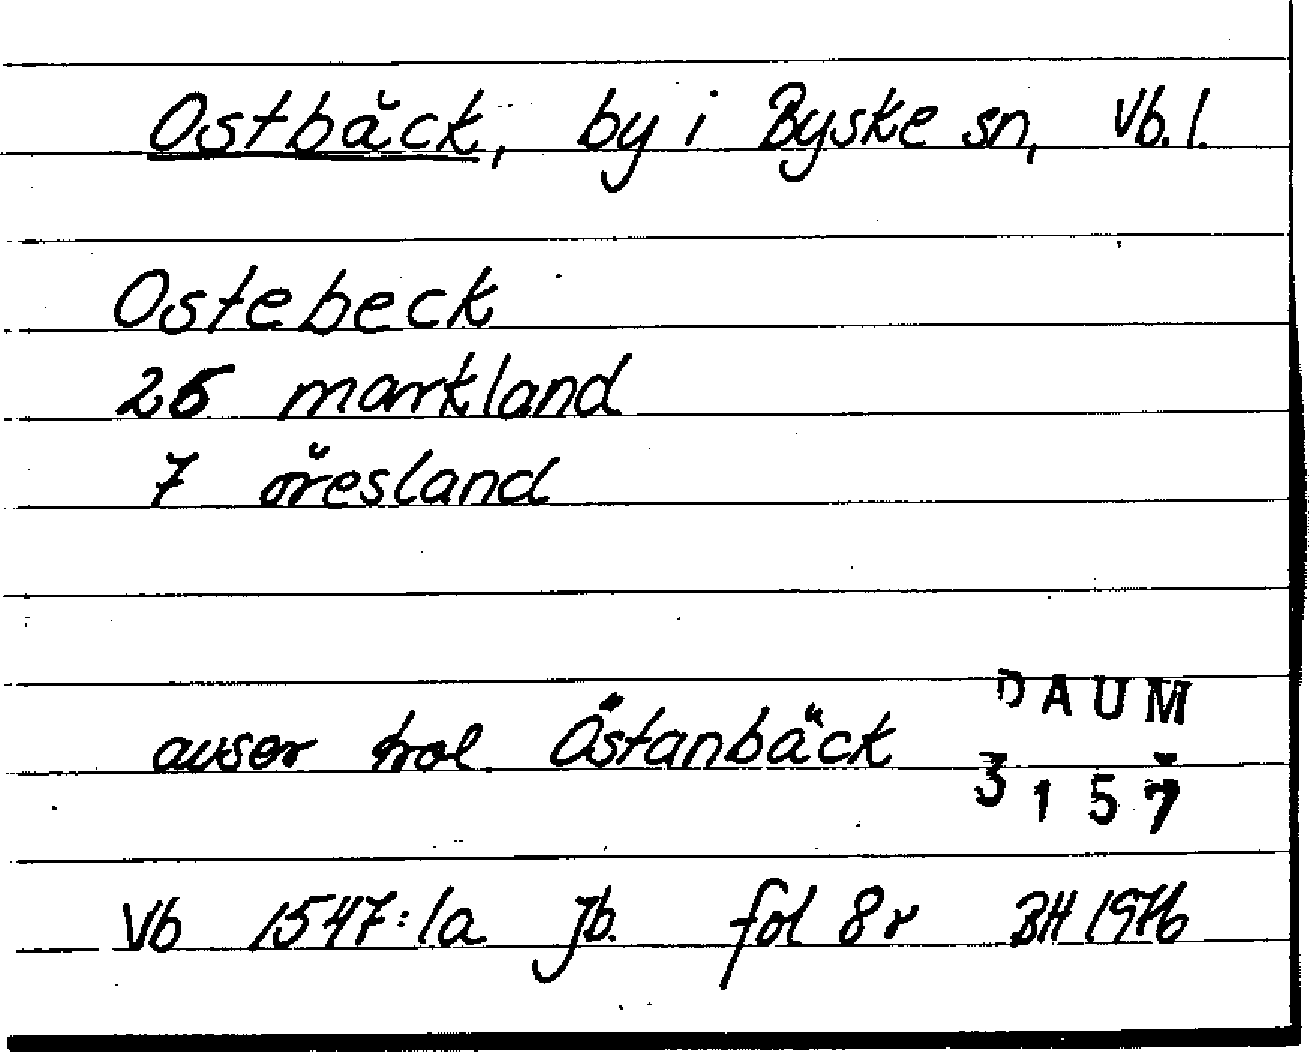 Ostbäck, by i Byske sn, Vb. l.
Ostebeck
26 markland
7 öresland
avser trol Östanbäck
DAUM
3157
Vb 1547:1a Jb. fol 8r BH 1976